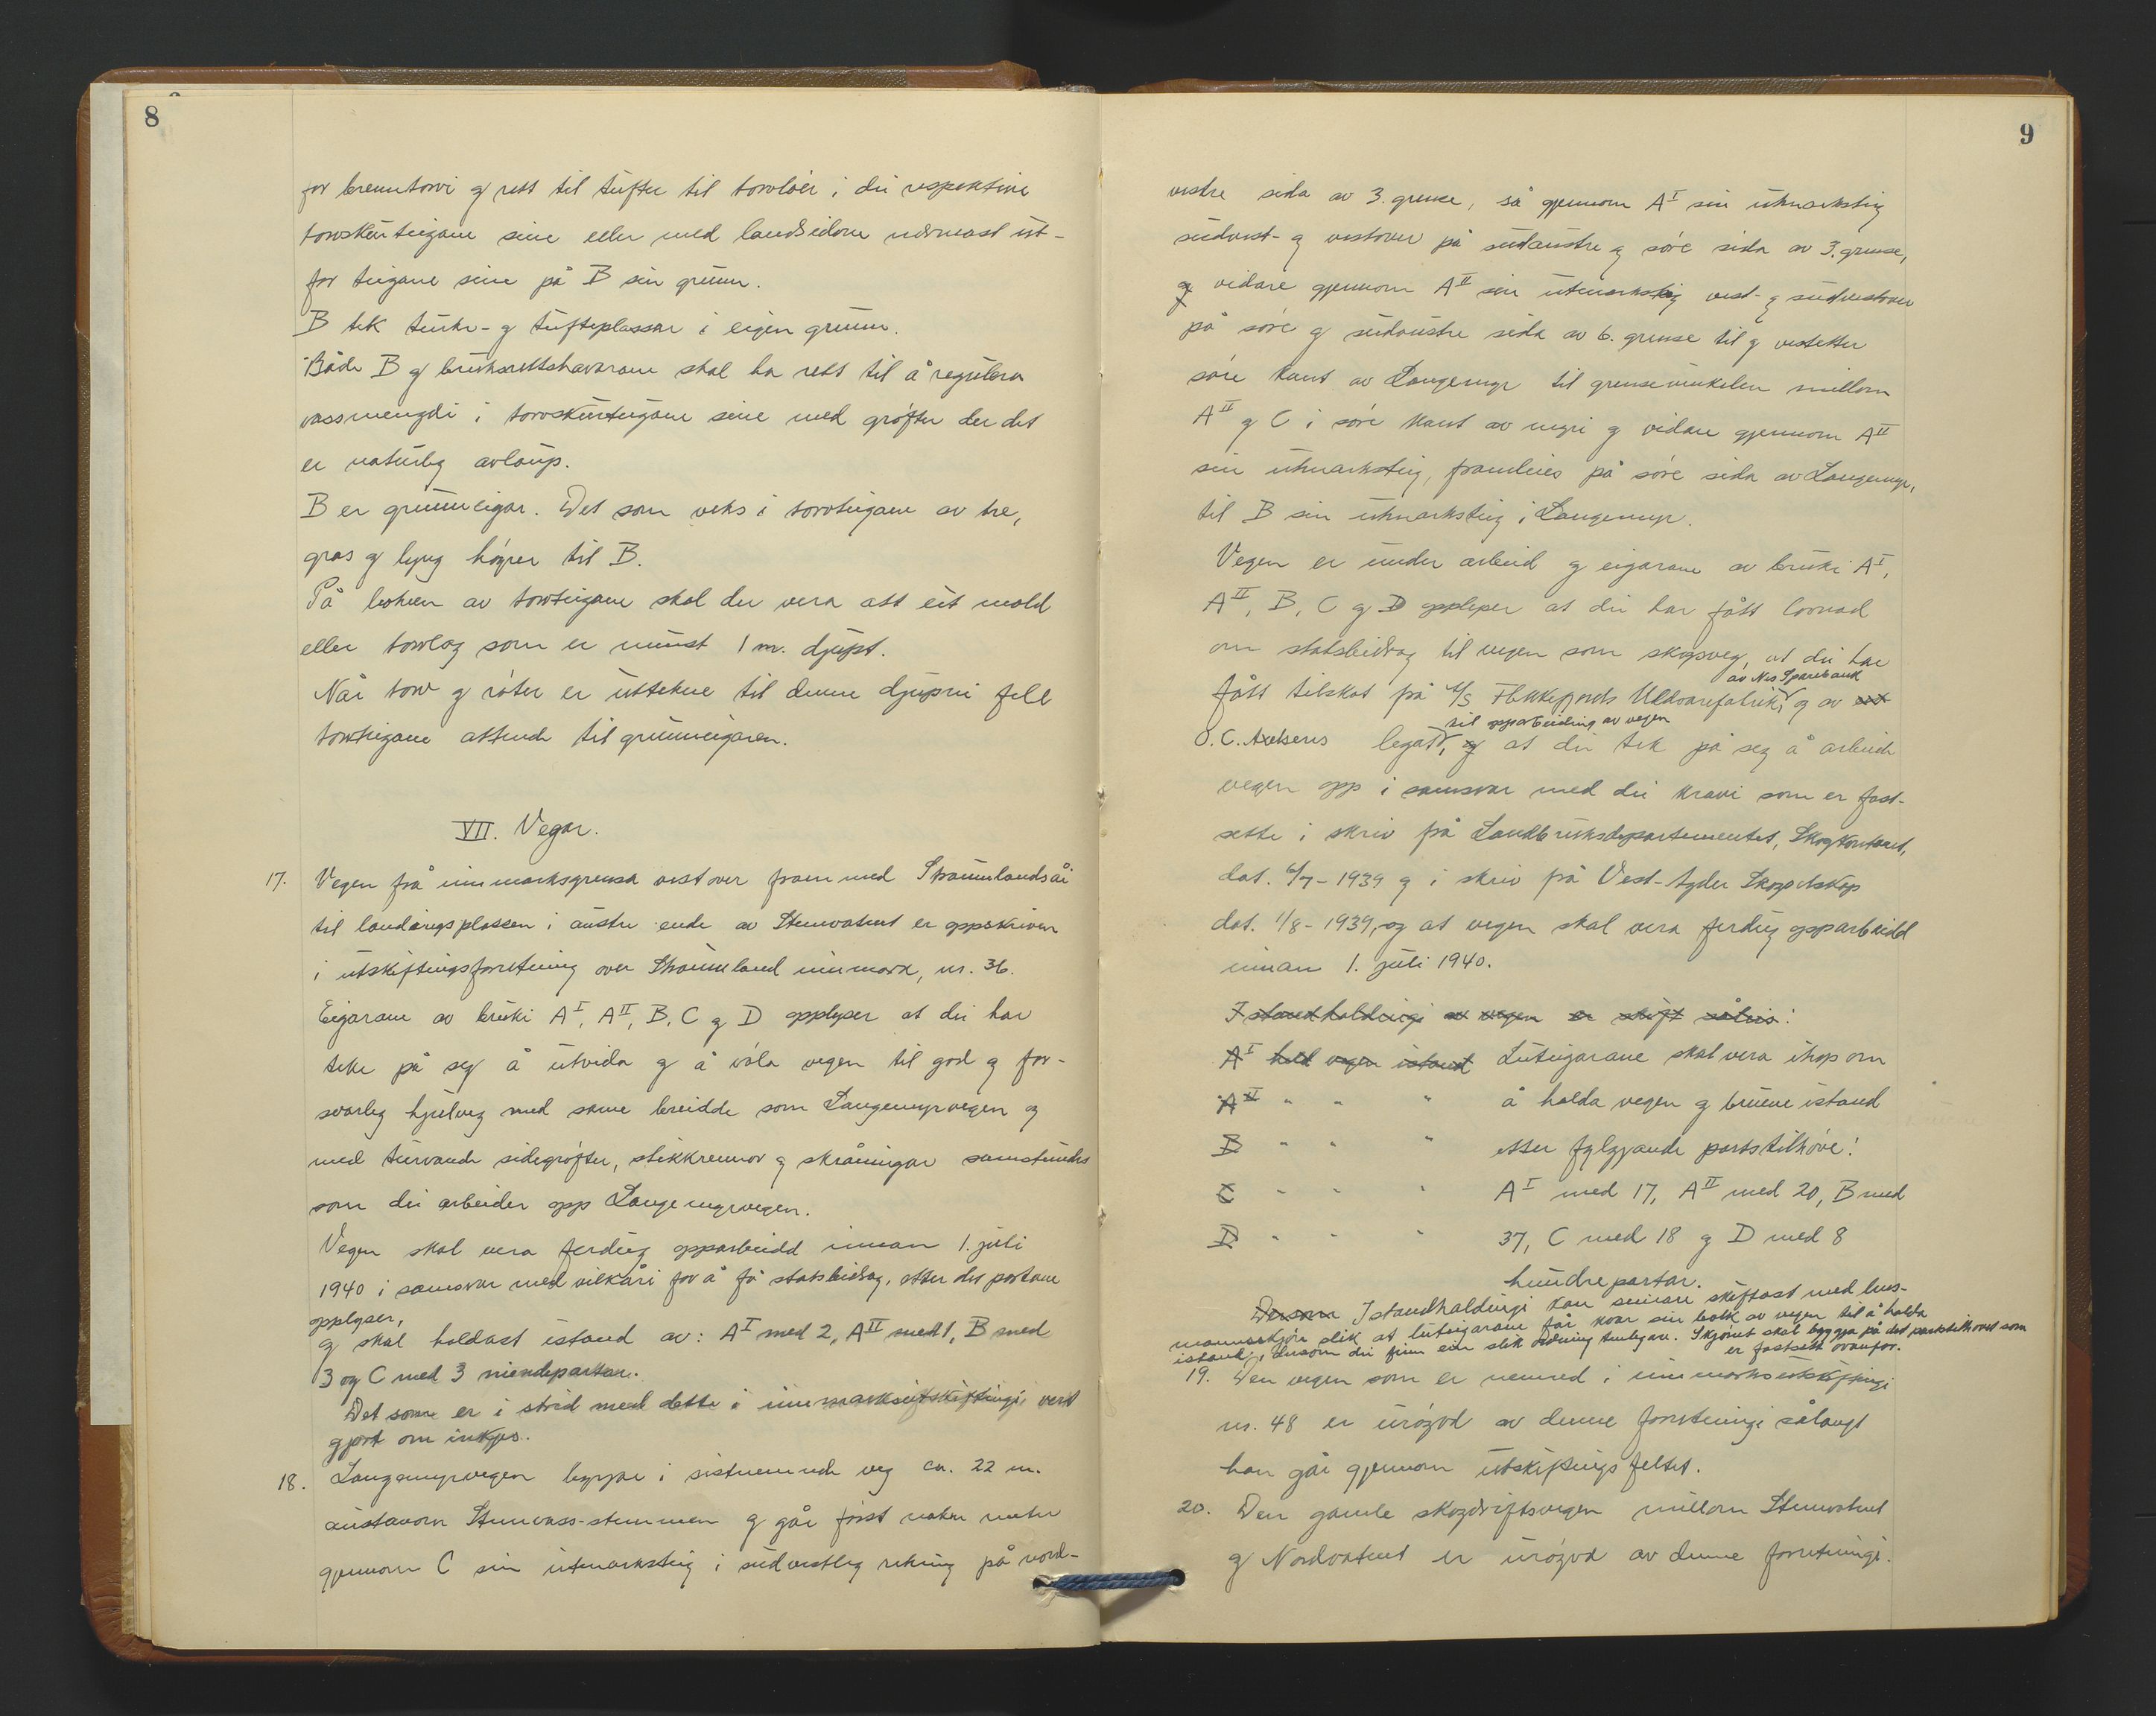 8
for brenntorvi og rett til tufter til torvløer i dei respektive
torvskurteigane sine eller med landsidone nærmast ut-
for teigane sine på B sin grunn.
B tek turke- og tufteplassar i eigen grunn.
Både B og bruksrettshavarane skal ha rett til å regulera
vassmengdi i torvskurteigane sine med grøfter der det
er naturleg avlaup.
B er grunneigar. Det som veks i torvteigane av tre,
gras og lyng høyrer til B.
På botnen av torvteigane skal der vera att eit mold
eller torvlag som er minst 1 m. djupt.
Når torv og røter er uttekne til denne djupni fell
torvteigane attende til grunneigaren.
VII. Vegar.
17. Vegen frå innmarksgrensa vestover fram med Straumlandsåi
til landingsplassen i austre ende av Stemvatnet er oppskriven
i utskiftingsforretning over Straumland innmark, nr. 36.
Eigarane av bruki A I, A II, B, C og D opplyser at dei har
teke på seg å utvida og å vøla vegen til god og for-
svarleg hjulveg med same breidde som Langemyrvegen og
med turvande sidegrøfter, stikkrennor og skråningar samstundes
som dei arbeider opp Langemyrvegen.
Vegen skal vera ferdig opparbeidd innan 1. juli
1940 i samsvar med vilkåri for å få statsbidrag, etter det partane
opplyser,
og skal haldast istand av: A I med 2, A II med 1, B med
3 og C med 3 niendepartar.
Det som er i strid med dette i innmarksutskiftingi vert
gjort om inkjes.
18. Langemyrvegen byrjar i sistnemnde veg ca. 22 m.
austanom Stemvass-stemmen og går først nokre meter
gjennom C sin utmarksteig i sudvestleg retning på nord-
9
vestre sida av 3. grense, så gjennom A I sin utmarksteig
sudvest- og vestover på sudaustre og søre sida av 3. grense,
og vidare gjennom A II sin utmarksteig vest- og sudvestover
på søre og sudaustre sida av 6. grense til og vestetter
søre kant av Langemyr til grensevinkelen millom
A II og C i søre kant av myri og vidare gjennom A II
sin utmarksteig, framleies på søre sida av Langemyr,
til B sin utmarksteig i Langemyr.
Vegen er under arbeid og eigarane av bruki A I,
A II, B, C og D opplyser at dei har fått lovnad
om statsbidrag til vegen som skogsveg, at dei har
av Nes Sparebank
fått tilskot på A/S Flekkefjords Uldvarefabrik, og av
til opparbeiding av vegen
O. C. Axelsens legat, og at dei tek på seg å arbeide
vegen opp i samsvar med dei kravi som er fast-
sette i skriv frå Landbruksdepartementet, Skogkontoret,
dat. 6/7 - 1939 og i skriv frå Vest-Agder Skogselskap
dat. 1/8 - 1939, og at vegen skal vera ferdig opparbeidd
innan 1. juli 1940.
Istandhaldingi av vegen er skift såleis:
A I held vegen istand Luteigarane skal vera ihop om
A II " " " å halda vegen og bruene istand
B " " " etter fylgjande partstilhøve:
C " " " A I med 17, A II med 20, B med
D " " " 37, C med 18 og D med 8
hundrepartar.
Dersom Istandhaldingi kan seinare skiftast med lens-
mannsskjøn slik at luteigarane får kvar sin bolk av vegen til å halda
istand, dersom dei finn ein slik ordning tenlegare. Skjønet skal byggja på det partstilhøvet som
er fastsett ovanfor.
19. Den vegen som er nemned i innmarksutskiftingi
nr. 48 er urøyvd av denne forretningi sålangt
han går gjennom utskiftingsfeltet.
20. Den gamle skogdriftsvegen millom Stemvatnet
og Nordvatnet er urøyvd av denne forretningi.